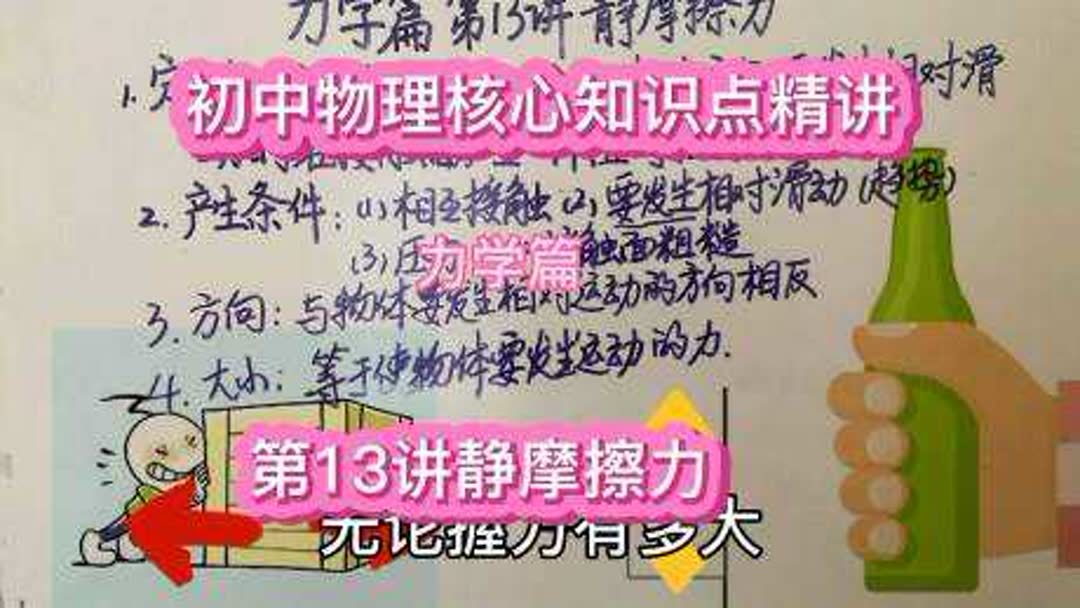 力学篇 第13讲 静摩擦力
1. 相对滑
初中物理核心知识点精讲
2. 产生条件: (1) 相互接触 (2) 要发生相对滑动 (趋势)
(3) 压力 触面粗糙
力学篇
3. 方向: 与物体要发生相对运动的方向相反
4. 大小: 等于使物体要发生运动的力.
第13讲静摩擦力
无论握力有多大